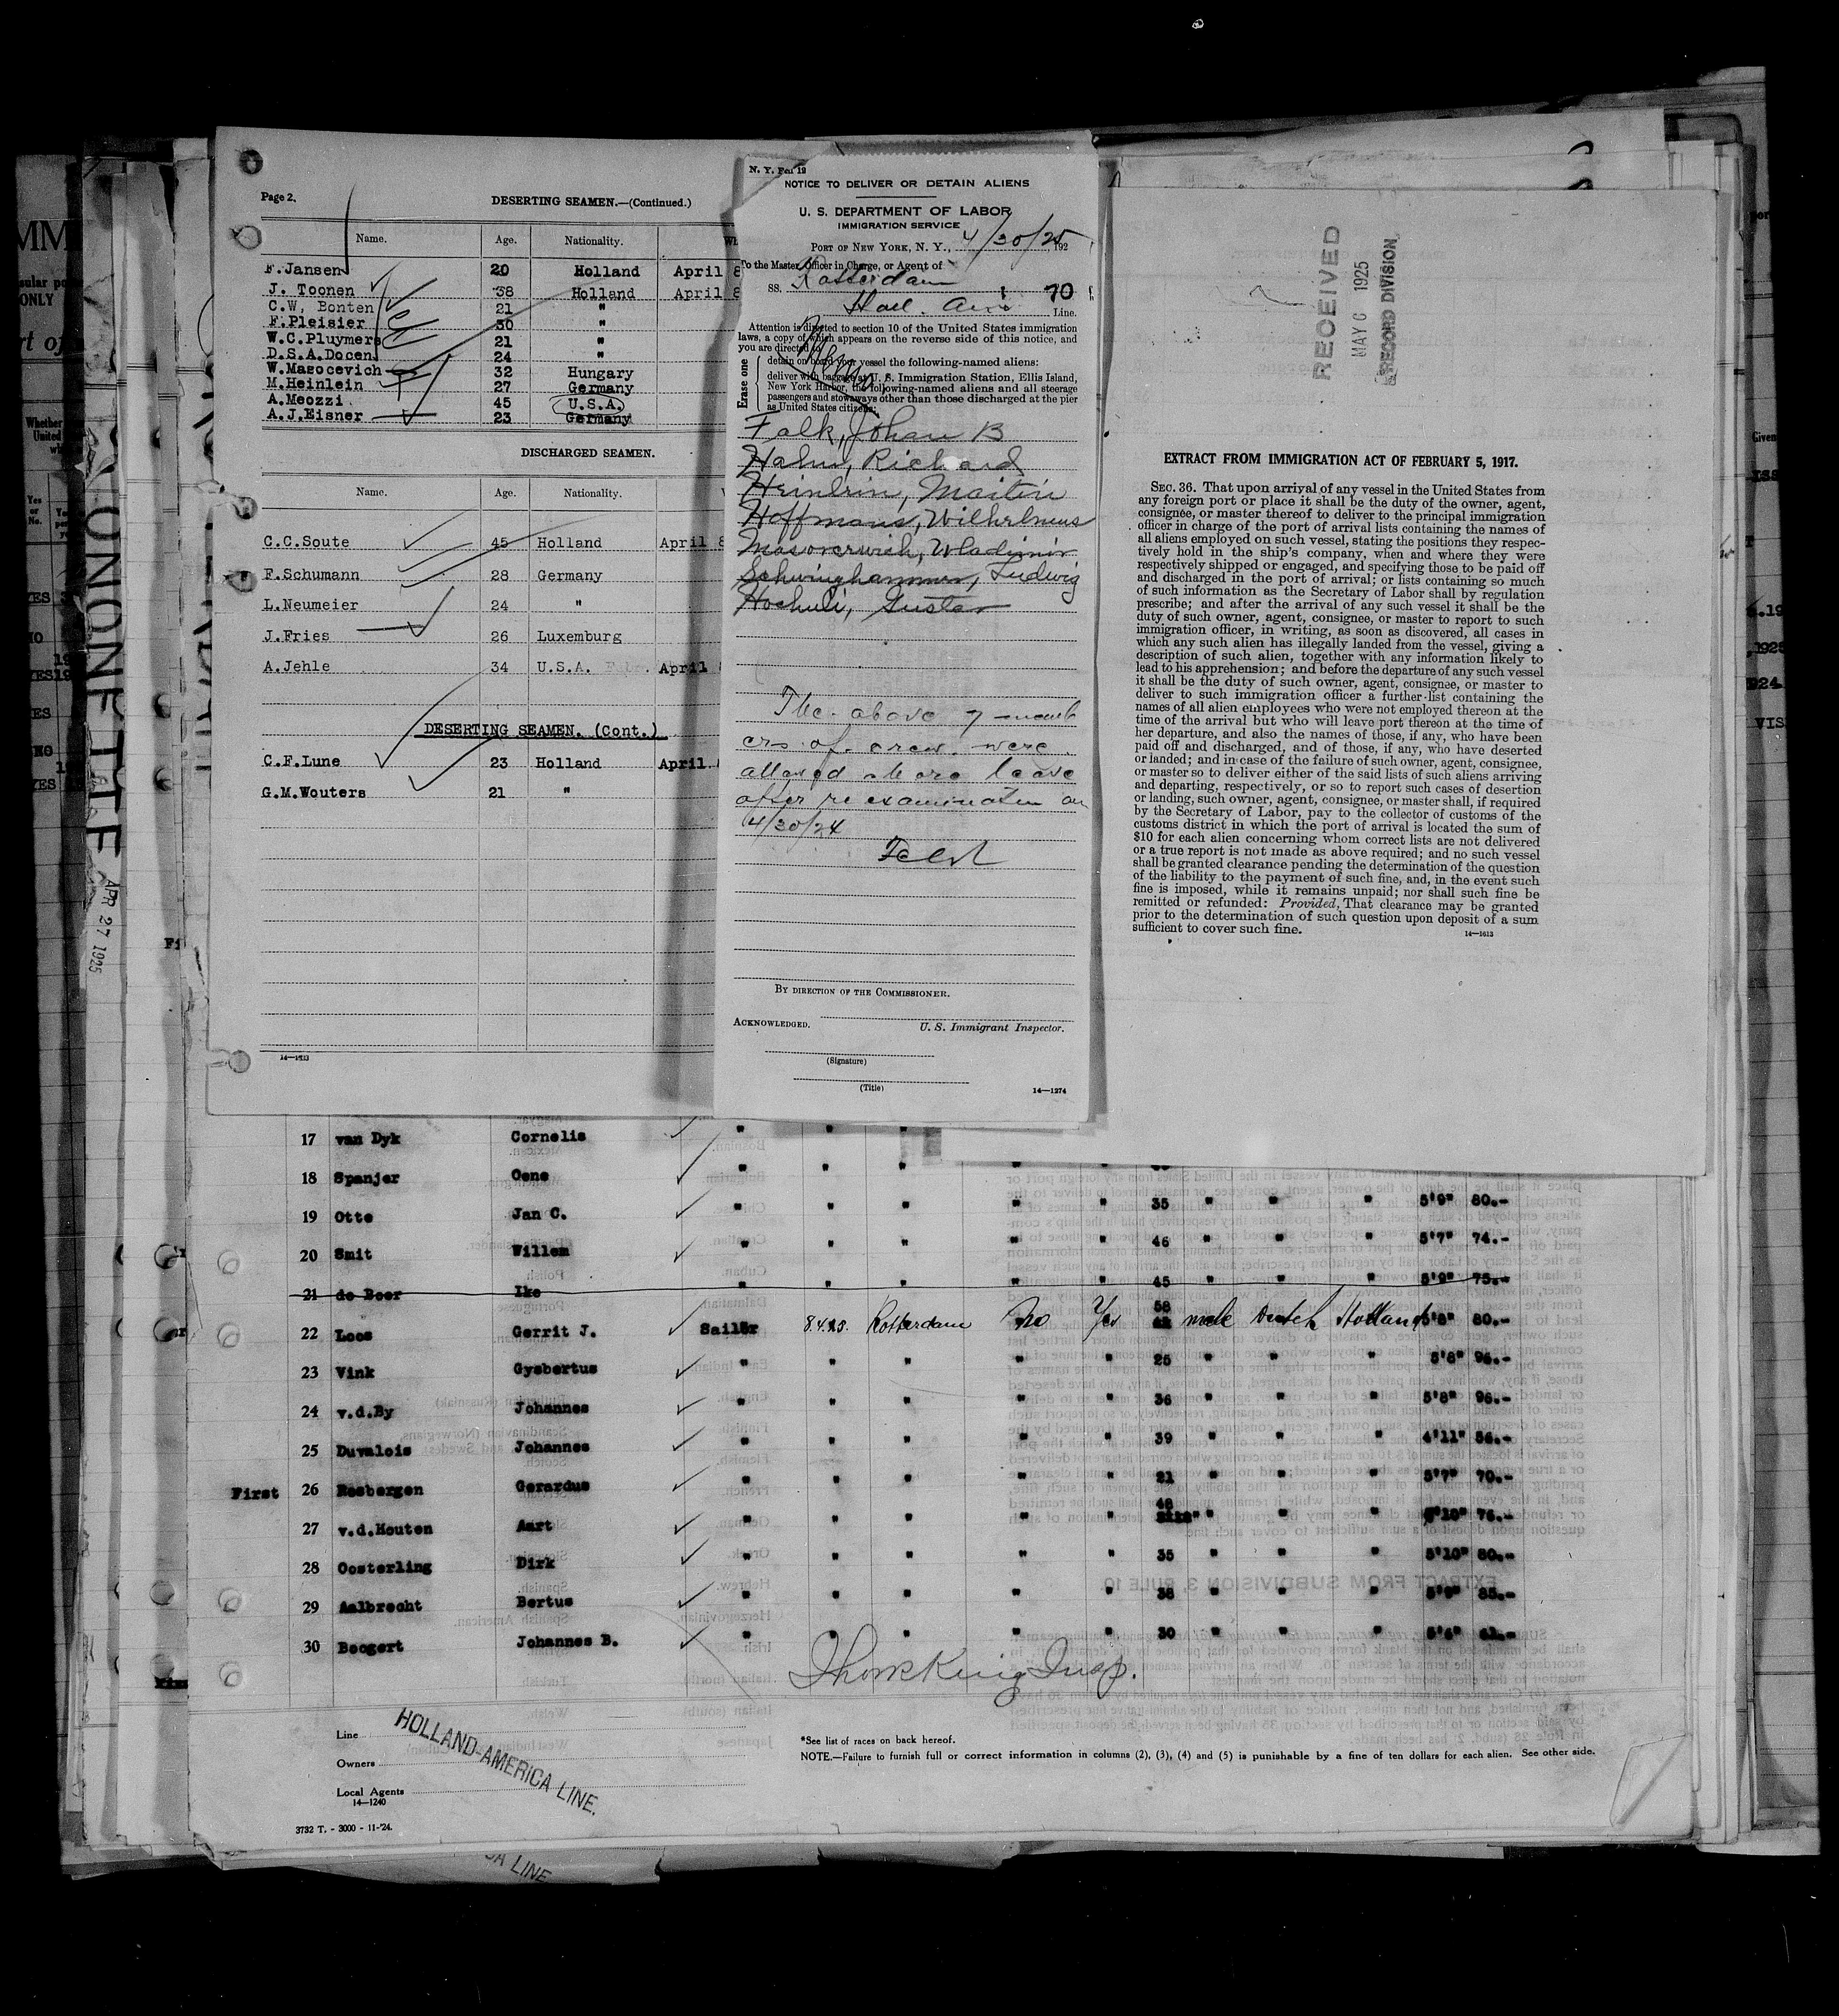 Page 2.
DESERTING SEAMEN.—(Continued.)
Name. Age. Nationality.
F.Jansen 20 Holland April 8
J. Toonen 38 Holland April 8
C.W. Bonten 21 "
F.Pleisier 30 "
W.C.Pluymers 21 "
D.S.A.Docen 24 "
W.Mazocevich 32 Hungary
M.Heinlein 27 Germany
A.Meozzi 45 U.S.A.
A.J.Eisner 23 Germany
DISCHARGED SEAMEN.
Name. Age. Nationality.
C.C.Soute 45 Holland April 8
F.Schumann 28 Germany
L.Neumeier 24 "
J.Fries 26 Luxemburg
A.Jehle 34 U.S.A. April
DESERTING SEAMEN. (Cont.)
C.F.Lune 23 Holland April
G.M.Wouters 21 "
14—1613
N. Y. Fei 19
NOTICE TO DELIVER OR DETAIN ALIENS
U. S. DEPARTMENT OF LABOR
IMMIGRATION SERVICE
PORT OF NEW YORK, N. Y., 4/30/25, 192
To the Master, Officer in Charge, or Agent of
SS. Rotterdam
Holl. Am. 70 Line.
Attention is directed to section 10 of the United States immigration
laws, a copy of which appears on the reverse side of this notice, and
you are directed to
Erase one
detain on board your vessel the following-named aliens:
deliver with baggage at U. S. Immigration Station, Ellis Island,
New York Harbor, the following-named aliens and all steerage
passengers and stowaways other than those discharged at the pier
as United States citizens:
Falk, Johan B
Hahn, Richard
Heinlein, Martin
Hoffmans, Wilhelmus
Masovcewich, Wladimir
Schwinghammer, Ludwig
Hochuli, Gustav
The above 7 memb
ers of crew were
allowed shore leave
after re examination on
4/30/24
BY DIRECTION OF THE COMMISSIONER.
ACKNOWLEDGED.
U. S. Immigrant Inspector.
(Signature)
(Title)
14—1274
RECEIVED
MAY 6 1925
RECORD DIVISION
EXTRACT FROM IMMIGRATION ACT OF FEBRUARY 5, 1917.
SEC. 36. That upon arrival of any vessel in the United States from
any foreign port or place it shall be the duty of the owner, agent,
consignee, or master thereof to deliver to the principal immigration
officer in charge of the port of arrival lists containing the names of
all aliens employed on such vessel, stating the positions they respec-
tively hold in the ship's company, when and where they were
respectively shipped or engaged, and specifying those to be paid off
and discharged in the port of arrival; or lists containing so much
of such information as the Secretary of Labor shall by regulation
prescribe; and after the arrival of any such vessel it shall be the
duty of such owner, agent, consignee, or master to report to such
immigration officer, in writing, as soon as discovered, all cases in
which any such alien has illegally landed from the vessel, giving a
description of such alien, together with any information likely to
lead to his apprehension; and before the departure of any such vessel
it shall be the duty of such owner, agent, consignee, or master to
deliver to such immigration officer a further list containing the
names of all alien employees who were not employed thereon at the
time of the arrival but who will leave port thereon at the time of
her departure, and also the names of those, if any, who have been
paid off and discharged, and of those, if any, who have deserted
or landed; and in case of the failure of such owner, agent, consignee,
or master so to deliver either of the said lists of such aliens arriving
and departing, respectively, or so to report such cases of desertion
or landing, such owner, agent, consignee, or master shall, if required
by the Secretary of Labor, pay to the collector of customs of the
customs district in which the port of arrival is located the sum of
$10 for each alien concerning whom correct lists are not delivered
or a true report is not made as above required; and no such vessel
shall be granted clearance pending the determination of the question
of the liability to the payment of such fine, and, in the event such
fine is imposed, while it remains unpaid; nor shall such fine be
remitted or refunded: Provided, That clearance may be granted
prior to the determination of such question upon deposit of a sum
sufficient to cover such fine.
14—1613
APR 27 1925
17 van Dyk Cornelis " " "
18 Spanjer Oene " " " " "
19 Otte Jan C. " " " " " 35 " " " 5'9" 80.-
20 Smit Willem " " " " " 46 " " " 5'7" 74.-
21 de Boer Ike " " " " " 45 " " " 5'9" 75.-
22 Loos Gerrit J. Sailor 8.4.25. Rotterdam No Yes 58 male Dutch Holland 5'8" 80.-
23 Vink Gysbertus " " " " " 25 " " " 5'8" 96.-
24 v.d.By Johannes " " " " " 36 " " " 5'8" 96.-
25 Duvalois Johannes " " " " " 39 " " " 4'11" 56.-
First 26 Rosbergen Gerardus " " " " " 21 " " " 5'7" 70.-
27 v.d.Houten Aart " " " " " 48 " " " 5'10" 76.-
28 Oosterling Dirk " " " " " 35 " " " 5'10" 80.-
29 Aalbrecht Bertus " " " " " 38 " " " 5'9" 85.-
30 Boogert Johannes B. " " " " " 30 " " " 5'6"
Line
Owners
Local Agents
HOLLAND-AMERICA LINE.
14—1240
3732 T. - 3000 - 11-'24.
*See list of races on back hereof.
NOTE.—Failure to furnish full or correct information in columns (2), (3), (4) and (5) is punishable by a fine of ten dollars for each alien. See other side.